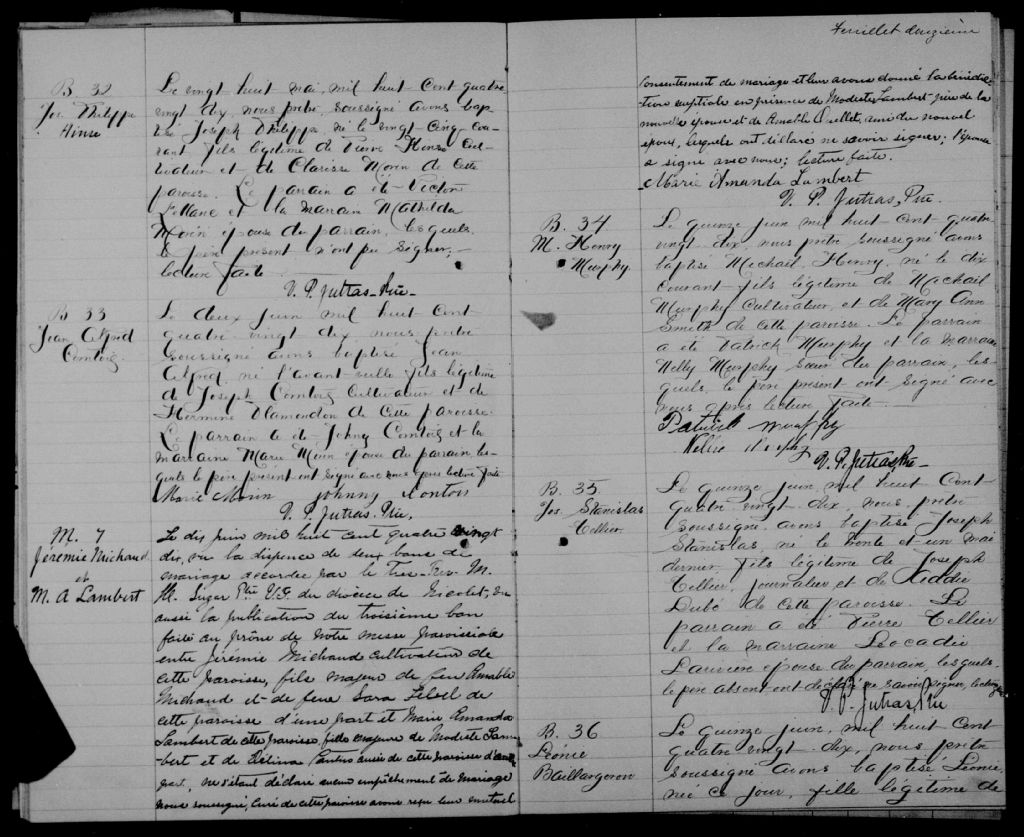 B 32
Jos. Philippe
Hinse
Le vingt huit mai, mil huit cent quatre
vingt dix, nous prêtre soussigné avons bap-
tisé Joseph Philippe, né le vingt cinq cou-
rant fils légitime de Pierre Hinse cul-
tivateur et de Clarisse Morin de cette
paroisse. Le parrain a été Victor
et la marraine Mathilda
Morin épouse du parrain, lesquels,
le père présent n'ont pu signer,
lecture faite.
V. P. Jutras, Ptre
B 33
Jean Alfred
Comtois
Le deux juin mil huit cent
quatre-vingt dix, nous prêtre
soussigné avons baptisé Jean
Alfred, né l'avant-veille fils légitime
de Joseph Comtois cultivateur et de
Hermine Plamondon de cette paroisse.
Le parrain a été Johny Comtois et la
marraine Marie Morin épouse du parrain, les-
quels le père présent ont signé avec nous après lecture faite
Marie Morin Johnny Contois
V. P. Jutras, Ptre,
M. 7
Jérémie Michaud
et
M. A Lambert
Le dix juin mil huit cent quatre vingt
dix, vu la dispense de deux bans de
mariage accordée par le Très-Rev. M.
Ptre V.G. du diocèse de Nicolet, vu
aussi la publication du troisième ban
faite au prône de notre messe paroissiale
entre Jérémie Michaud cultivateur de
cette paroisse, fils majeur de feu Amable
Michaud et de feue Sara Lebel de
cette paroisse d'une part et Marie Amanda
Lambert de cette paroisse, fille majeure de Modeste Lam-
bert et de Délina aussi de cette paroisse d'autre
part, ne s'étant déclaré aucun empêchement de mariage
nous soussigné, curé de cette paroisse avons reçu leur mutuel
Feuillet douzième
consentement de mariage et leur avons donné la bénédic-
tion nuptiale en présence de Modeste Lambert père de la
nouvelle épouse et de Amable Ouellet, ami du nouvel
époux, lesquels ont déclaré ne savoir signer; l'épouse
a signé avec nous; lecture faite.
Marie Amanda Lambert
V. P. Jutras, Ptre.
B. 34
M. Henry
Murphy.
Le quinze juin mil huit cent quatre
vingt dix, nous prêtre soussigné avons
baptisé Michael Henry, né le dix
courant fils légitime de Machail
Murphy cultivateur, et de Mary Ann
Smith de cette paroisse. Le parrain
a été Patrick Murphy et la marraine
Nelly Murphy sœur du parrain, les-
quels le père présent ont signé avec
nous après lecture faite.
Patrick
Nellie
V. P. Jutras, Ptre
B. 35
Jos. Stanislas
Tellier.
Le quinze juin, mil huit cent
quatre vingt-dix, nous prêtre
soussigné avons baptisé Joseph
Stanislas né le trente et un mai
dernier, fils légitime de Joseph
Tellier, journalier et de Liddie
Dubé de cette paroisse. Le
parrain a été Pierre Tellier
et la marraine Léocadie
Larivière épouse du parrain, lesquels,
le père absent ont déclaré ne savoir signer, lecture faite
V. P. Jutras, Ptre
B. 36
Léonie
Baillargeron
Le quinze juin, mil huit cent
quatre vingt-dix, nous prêtre
soussigné avons baptisé Léonie,
née ce jour, fille légitime de